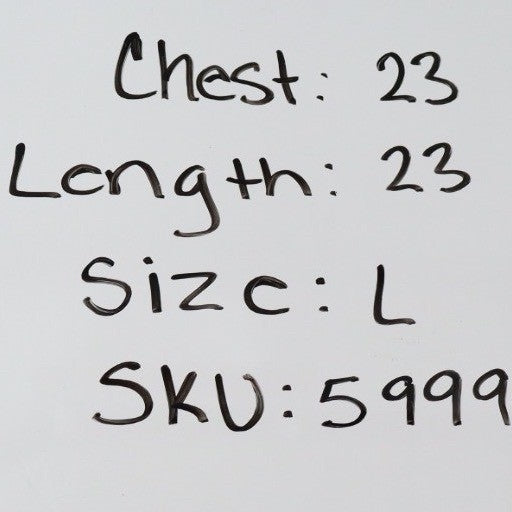 Chest: 23
Length: 23
Size: L
SKU: 5999